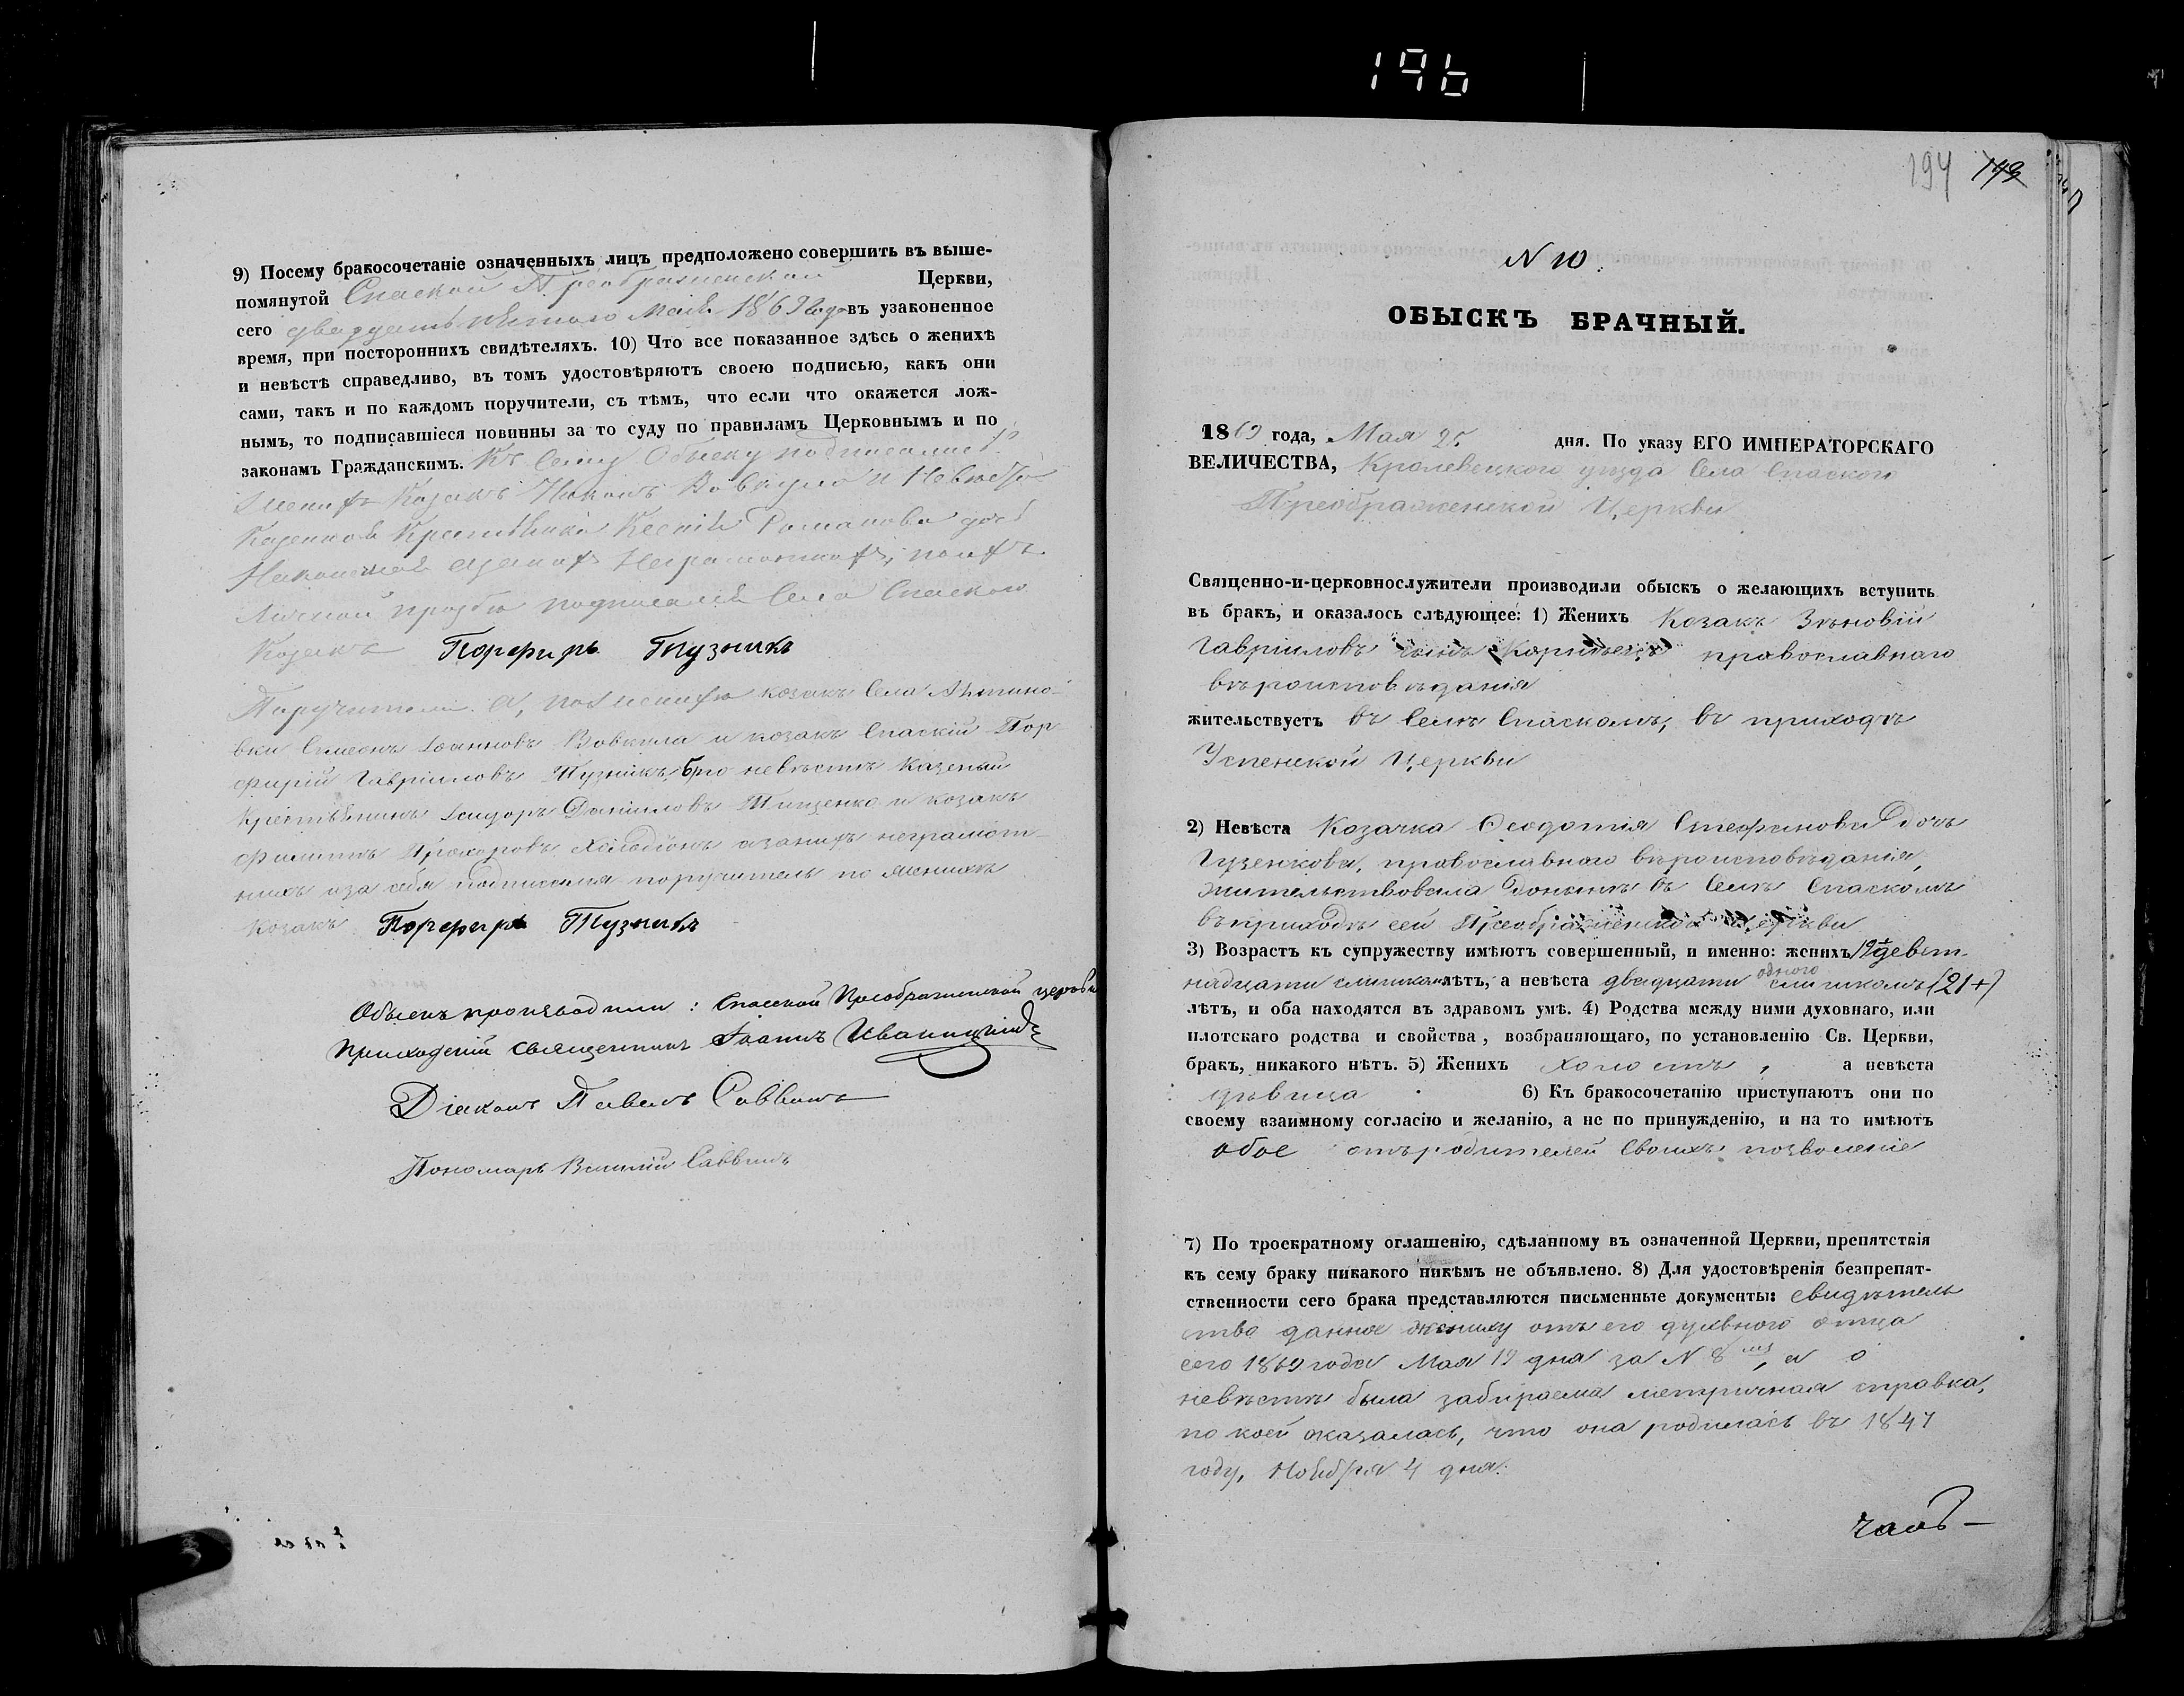 196
9) Посему бракосочетаніе означенныхъ лицъ предположено совершить въ выше-
помянутой Спаской Преображенской Церкви,
сего двадцать пятого Мая 1869 года въ узаконенное
время, при постороннихъ свидѣтеляхъ. 10) Что все показанное здѣсь о женихѣ
и невѣстѣ справедливо, въ томъ удостовѣряютъ своею подписью, какъ они
сами, такъ и по каждомъ поручители, съ тѣмъ, что если что окажется лож-
нымъ, то подписавшіеся повинны за то суду по правиламъ Церковнымъ и по
законамъ Гражданскимъ. Къ сему Обыску подписались
Женихъ Козакъ Никонъ Вовкула и Невѣста
Казенная Крестьянка Ксенія Романова
личной прозбѣ подписался Села Спаского
Козакъ Порфиръ Тузникъ
Поручители: а, по женихѣ козакъ Села Лѣтино-
вки Симеонъ Іоанновъ Вовкула и козакъ Спаскій Пор
фирій Гавріиловъ Тузникъ, б, по невѣстѣ казеный
Крестьянинъ Исидоръ Даніиловъ Тищенко и козакъ
Филиппъ Прохоровъ а за нихъ неграмот-
ныхъ и за себя подписался поручитель по женихѣ
Козакъ Порфиръ Тузникъ
Обыскъ производили: Спаской Преображенской церкви
Приходскій священникъ Іоаннъ Иваницкій
Діаконъ Павелъ Саввинъ
Пономарь Василій Саввинъ
194 193
N 10.
ОБЫСКЪ БРАЧНЫЙ.
1869 года, Мая 25 дня. По указу ЕГО ИМПЕРАТОРСКАГО
ВЕЛИЧЕСТВА, Кролевецкого уѣзда Села Спаского
Преображенской Церкви
Священно-и-церковнослужители производили обыскъ о желающихъ вступить
въ бракъ, и оказалось слѣдующее: 1) Женихъ Козакъ Зѣновій
Гавріиловъ сынъ православнаго
вѣроисповѣданія
жительствуетъ въ Селѣ Спаскомъ, въ приходѣ
Успенской Церкви
2) Невѣста Козачка Ѳеодотія Стефанова дочь
Гузенкова, православнаго вѣроисповѣданія,
жительствовала донынѣ въ Селѣ Спаскомъ
въ приходѣ сей Преображенской Церкви
3) Возрастъ къ супружеству имѣютъ совершенный, и именно: женихъ 19+ девят-
надцати слишкомъ лѣтъ, а невѣста двадцати одного слишкомъ (21+)
лѣтъ, и оба находятся въ здравомъ умѣ. 4) Родства между ними духовнаго, или
плотскаго родства и свойства, возбраняющаго, по установленію Св. Церкви,
бракъ, никакого нѣтъ. 5) Женихъ холостъ, а невѣста
дѣвица. 6) Къ бракосочетанію приступаютъ они по
своему взаимному согласію и желанію, а не по принужденію, и на то имѣютъ
обое отъ родителей своихъ позволеніе
7) По троекратному оглашенію, сдѣланному въ означенной Церкви, препятствія
къ сему браку никакого никѣмъ не объявлено. 8) Для удостовѣренія безпрепят-
ственности сего брака представляются письменные документы: свидѣтель
ство данное жениху отъ его духвного отца
сего 1869 года Мая 19 дня за N 8мъ, а о
невѣстѣ была забираема метричная справка,
по коей оказалась, что она родилась въ 1847
году, Ноября 4 дня.